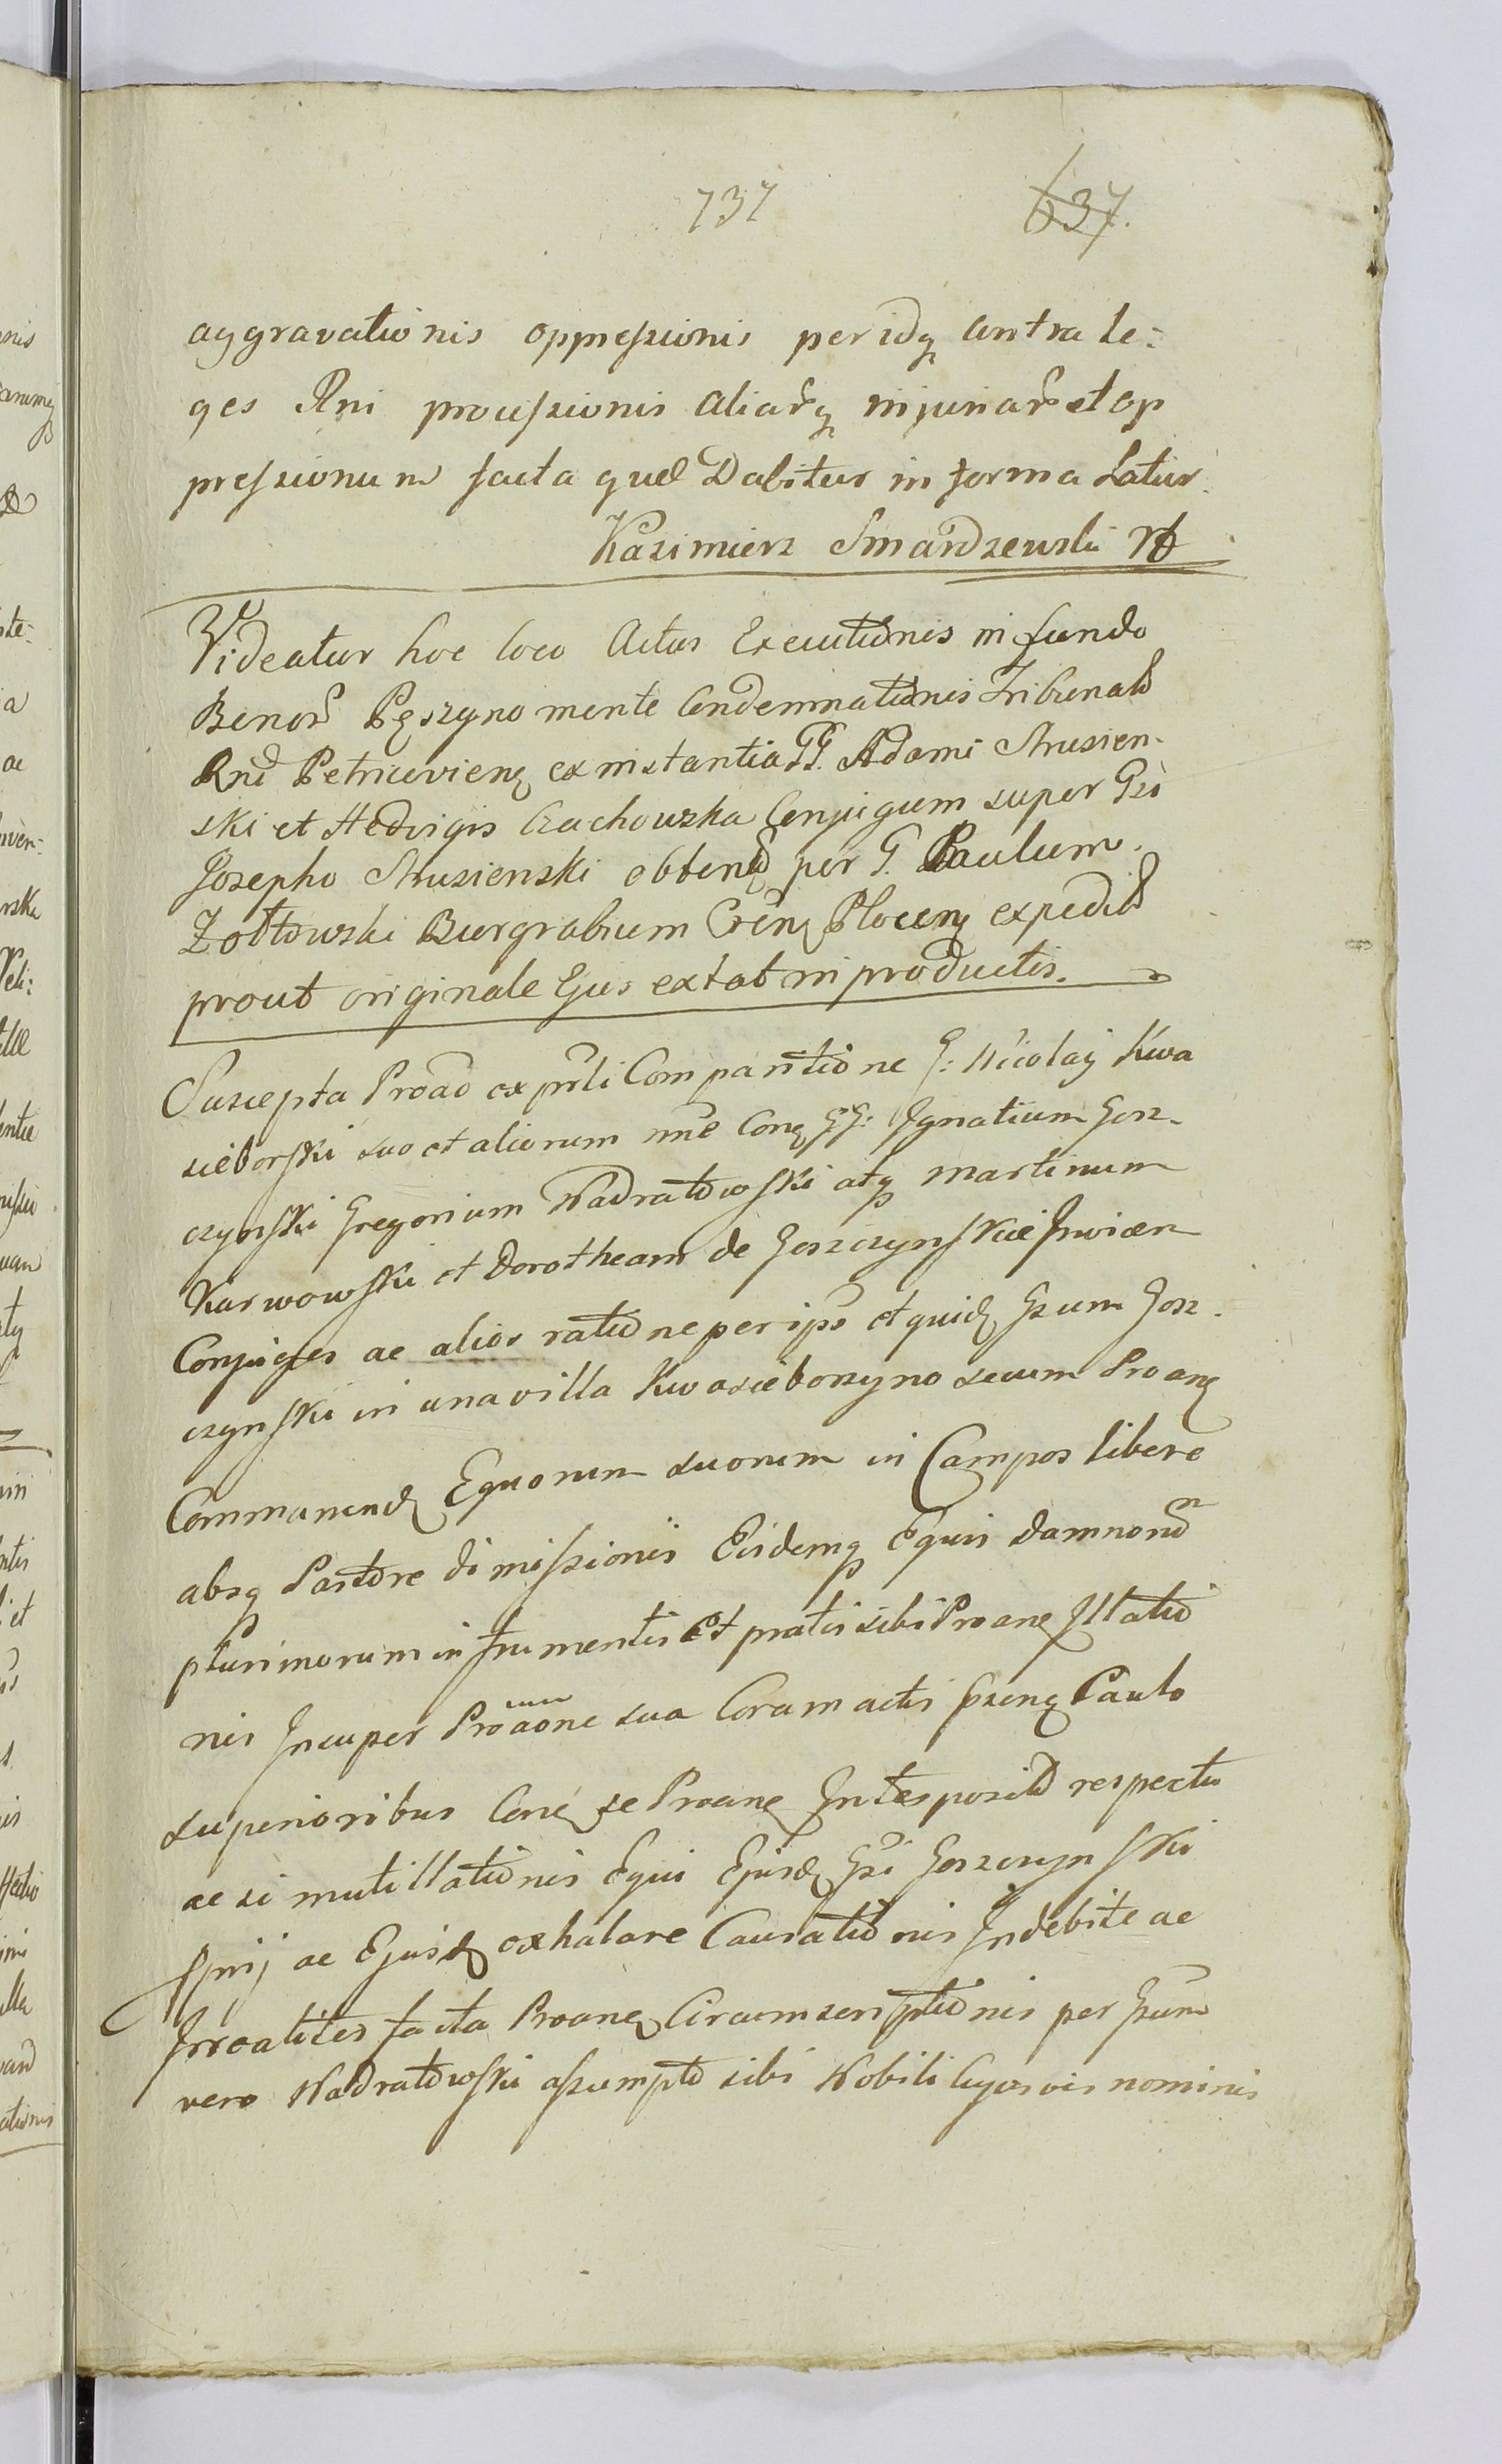 737 637.
aggravationis oppressionis per idq contra le:
ges Rni processionis aliarq injuriar et op
pressionum facta quae Dabitur in forma Latior.
Kazimierz Smardzewski
Videatur hoc loco Actus Executionis in fundo
Bonor Pęszyno mente Condemnationis Tribunal
Rni Petricovien ex instantia GG. Adami Strusien-
ski et Hedvigis Czachowska Conjugum super Gso
Josepho Strusienski obten per G. Paulum
Żółtowski Burgrabium Cren Plocen expedit
prout originale Ejus extat in productis.
Suscepta Proao ex pnti Comparitione G: Nicolaj Kwa
sieborski suo et aliorum nne Con GG: Ignatium Gosz-
czynski Gregorium Nadratowski atq Martinum
Karwowski et Dorotheam de Goszczynskie
Conjuges ac alios ratione per ipso et quid Gsum Gosz-
czynski in una villa Kwasieborzyno secum Proane
Commanend Equorum suorum in Campos libere
absq Pastore dimissionis Eisdemq Equis damnorum
plurimorum in frumentis Et pratis sibi Proane Illatio
nis Insuper Proaone sua Coram actis psenq Paulo
superioribus Con se Proane Interposit respectu
ac si mutillationis Equi Ejusd Gsi Goszczynski
sprij ac Ejusd exhalare Causationis Indebite ac
Irrealiter facta Proane Circumscriptionis per Gsum
vero Nadratowski assumpto sibi Nobili Cujusvis nominis